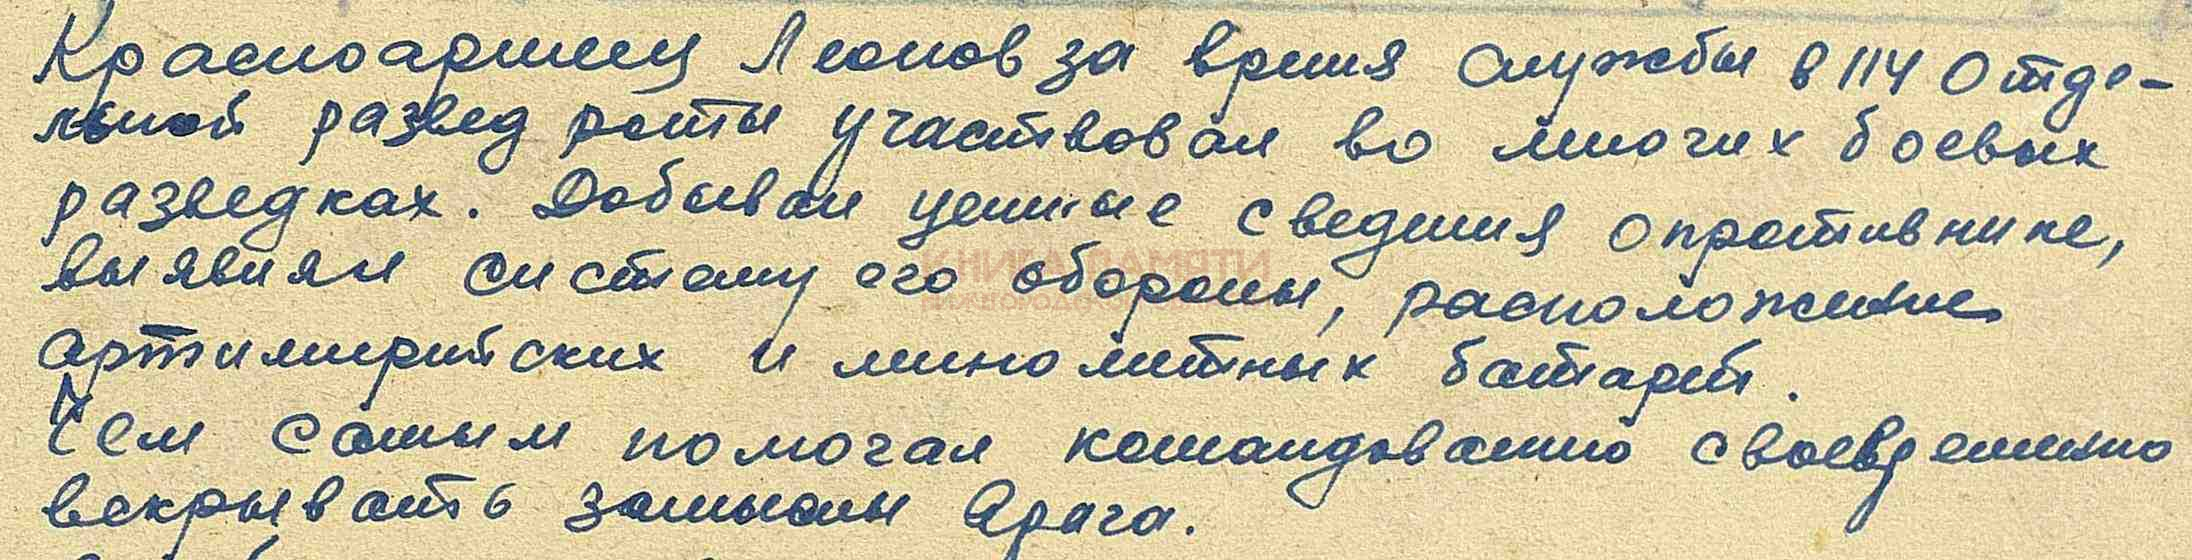 Красноармеец Леонов за время службы в 114 отде-
льной развед роты участвовал во многих боевых
разведках. Добывал ценные сведения о противнике,
выявлял систему его обороны, расположение
артиллерийских и минометных батарей.
Чем самым помогал командованию своевременно
вскрывать замыслы врага.
КНИГА ПАМЯТИ